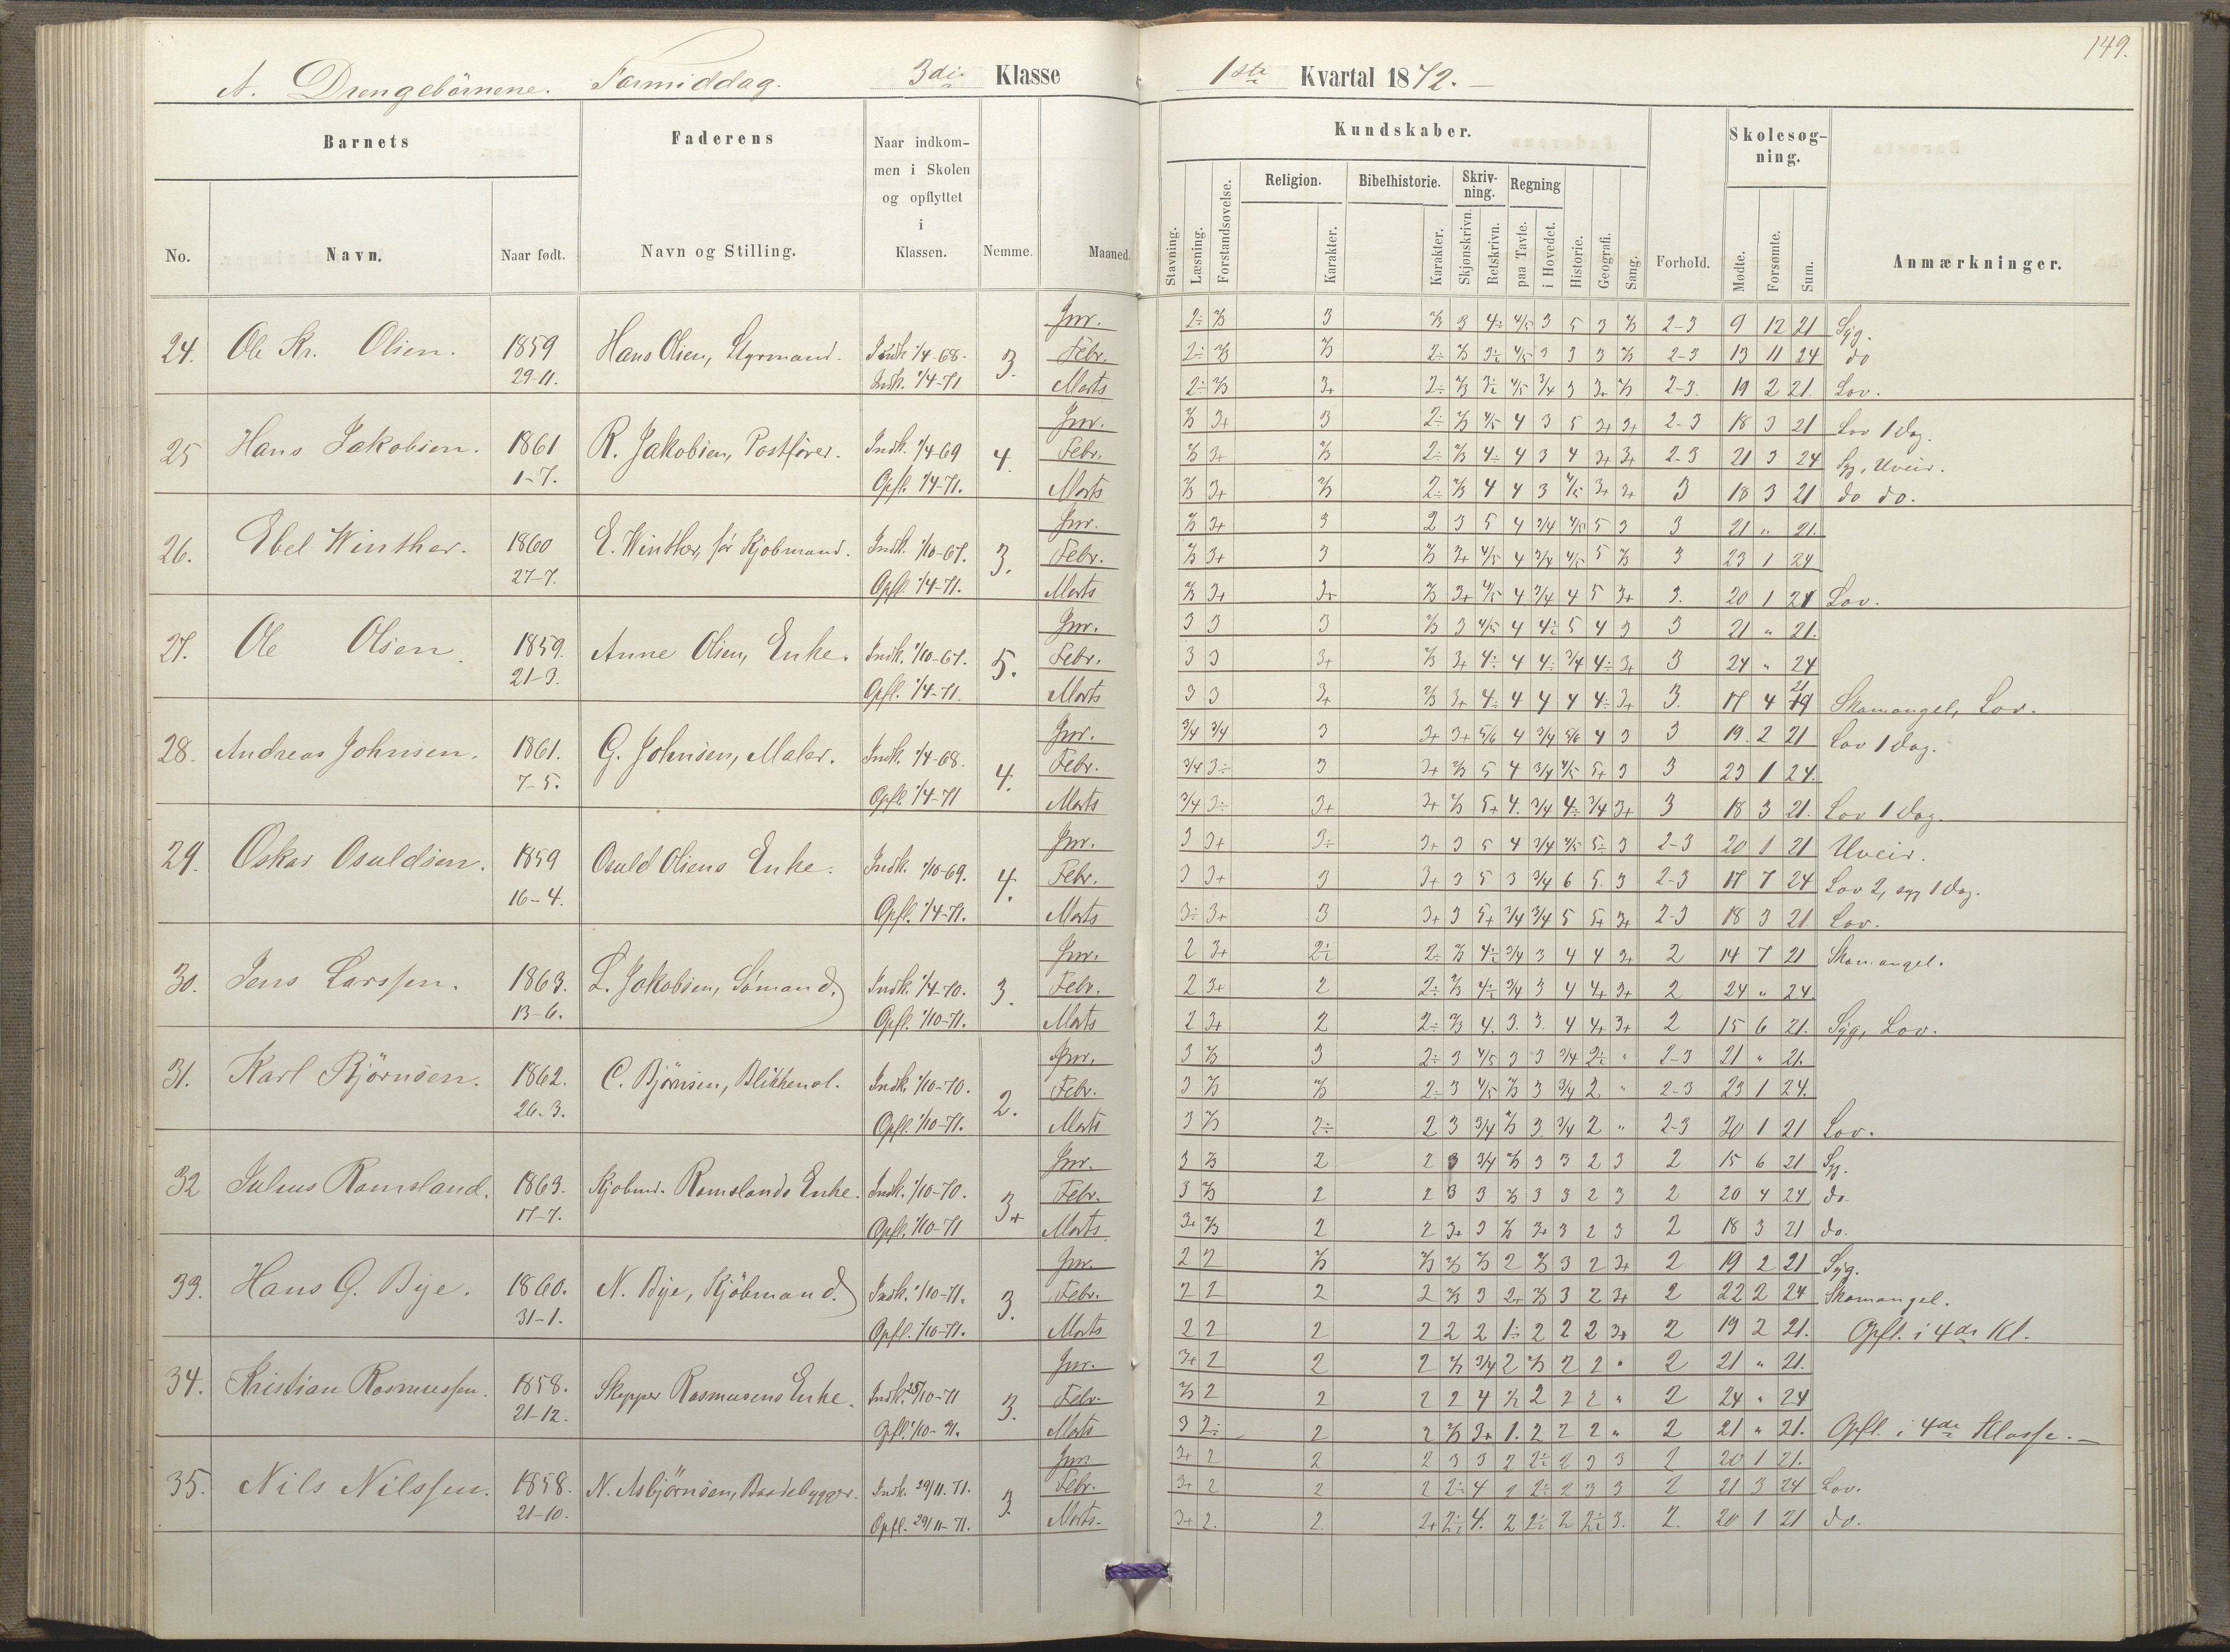 149.
A. Drengebörnene. Formiddag. 3die Klasse 1ste Kvartal 1872.
Barnets Faderens Naar indkommen i Skolen og opflyttet i Klassen. Nemme. Maaned. Kundskaber. Forhold. Skolesøgning. Anmærkninger.
No. Navn. Naar født. Navn og Stilling.
Stavning. Læsning. Forstandsøvelse. Religion. Karakter. Bibelhistorie. Karakter. Skrivning. Skjønskrivn. Retskrivn. Regning paa Tavle. i Hovedet. Historie. Geografi. Sang. Mødte. Forsømte. Sum.
24. Ole Kr. Olsen. 1859 29-11. Hans Olsen, Styrmand. Indk. 1/4-68. Indk. 1/4-71 3.
Jnr. 2÷ 2/3 3 2/3 3 4÷ 4/5 3 5 3 2/3 2-3 9 12 21 Syg.
Febr. 2÷ 2/3 2/3 2÷ 2/3 3÷ 4/5 3 3 3 2/3 2-3 13 11 24 do
Marts 2÷ 2/3 3+ 2÷ 2/3 3÷ 4/5 3/4 3 3+ 2/3 2-3. 19 2 21. Lov.
25 Hans Jakobsen. 1861 1-7. R. Jakobsen, Postfører. Indk. 1/4 69 Opfl. 1/4-71. 4.
Jnr. 2/3 3+ 3 2÷ 2/3 4/5 4 3 5 3+ 3+ 2-3 18 3 21 Lov 1 dag.
Febr. 2/3 3+ 2/3 2÷ 2/3 4÷ 4 3 4 3+ 3+ 2-3 21 3 24 Syg, Uveir.
Marts 2/3 3+ 2/3 2÷ 2/3 4 4 3 4/5 3+ 3+ 3 18 3 21 do do.
26. Ebel Winther. 1860 27-7. E. Winther, før Kjöbmand. Indk. 1/10-67. Opfl. 1/4-71. 3.
Jnr. 2/3 3+ 3 2 3 5 4 3/4 4/5 5 3 3 21 " 21.
Febr. 2/3 3+ 3 2/3 3+ 4/5 4 3/4 4/5 5 2/3 3 23 1 24
Marts 2/3 3+ 3+ 2/3 3+ 4/5 4 3/4 4 5 3+ 3. 20 1 21 Lov.
27. Ole Olsen. 1859. 21-3. Anne Olsen, Enke. Indk. 1/10-67. Opfl. 1/4-71. 5.
Jnr. 3 3 3 2/3 3 4/5 4 4÷ 5 4 3 3 21 " 21.
Febr. 3 3 3+ 2/3 3+ 4÷ 4 4÷ 3/4 4÷ 3+ 3 24 " 24
Marts 3 3 3+ 2/3 3+ 4÷ 4 4 4 4÷ 3+ 3. 17 4 21 Skomangel, Lov.
28. Andreas Johnsen. 1861. 7-5. G. Johnsen, Maler. Indk. 1/4-68. Opfl. 1/4-71 4.
Jnr. 3/4 3/4 3 3+ 3+ 5/6 4 3/4 5/6 4 3 3 19. 2 21 Lov 1 dag.
Febr. 3/4 3÷ 3 3+ 2/3 5 4 3/4 4/5 5+ 3 3 23 1 24.
Marts 3/4 3÷ 3+ 3+ 2/3 5+ 4. 3/4 4÷ 3/4 3+ 3 18 3 21. Lov 1 dag.
29. Oskar Osuldsen. 1859 16-4. Osuld Olsens Enke. Indk. 1/10-69. Opfl. 1/4-71. 4.
Jnr. 3 3+ 3÷ 3+ 3 5 4 3/4 4/5 5÷ 3 2-3 20 1 21 Uveir.
Febr. 3 3+ 3 3+ 3 5 3 3/4 6 5. 3 2-3 17 7 24 Lov 2, syg 1 dag.
Marts 3÷ 3+ 3 3+ 3 5+ 3/4 3/4 5 5+ 3+ 2-3 18 3 21. Lov.
30. Jens Larssen. 1863. 13-6. L. Jakobsen, Sömand. Indk. 1/4-70. Opfl. 1/10-71. 3.
Jnr. 2 3+ 2÷ 2÷ 2/3 4÷ 3/4 3 4 4 3+ 2 14 7 21 Skomangel.
Febr. 2 3+ 2 2÷ 2/3 4÷ 3/4 3 4 4+ 3+ 2 24 " 24
Marts 2 3+ 2 2÷ 2/3 4. 3. 3. 4 4+ 3+ 2 15 6 21. Syg, Lov.
31. Karl Bjørnsen. 1862. 26-3. C. Bjørnsen, Blikkensl. Indk. 1/10-70. Opfl. 1/10-71. 2.
Jnr. 3 2/3 3 2÷ 3 4/5 3 3 3/4 2÷ " 2-3 21 " 21.
Febr. 3 2/3 2/3 2÷ 3 4/5 2/3 3 3/4 2 " 2-3 23 1 24.
Marts 3 2/3 2÷ 2 3 3/4 2/3 3. 3/4 2 " 2-3 20 1 21 Lov.
32 Julius Romsland. 1863. 17-7. Kjöbmd. Romslands Enke. Indk. 1/10-70. Opfl. 1/10-71 3+
Jnr. 3 2/3 2 2 3 3/4 2/3 3 3 2 3 2 15 6 21 Syg.
Febr. 3 2/3 2 2 3 3 2/3 3 3 2 3 2 20 4 24 do
Marts 3+ 2/3 2 2 3+ 3 2/3 3+ 3 2 3 2 18 3 21 do.
33. Hans G. Bye. 1860. 31-1. N. Bye, Kjöbmand. Indk. 1/10-71. Opfl. 1/10-71. 3.
Jnr. 2 2 2/3 2/3 2/3 2/3 2 2/3 3 2 3+ 2 19 2 21 Syg.
Febr. 2 2 2 2 2/3 3 2+ 2/3 3 2 3+ 2 22 2 24 Skomangel.
Marts 2 2 2 2 2 2 1÷ 2 2 2 3+ 2 19 2 21. Opfl. i 4de Kl.
34. Kristian Rasmussen. 1858. 21-12. Skipper Rasmusens Enke. Indk. 25/10-71 Opfl. 1/10-71. 3.
Jnr. 3+ 2 2 2 2/3 3/4 2 2/3 2 2 " 2 21 " 21.
Febr. 2/3 2 2 2 2 4 1/2 2 2 2 " 2 24 " 24
Marts 3 2÷ 2 2 2/3 3+ 1. 2 2 2 " 2 21 " 21. Opfl. i 4de Klasse.
35. Nils Nilssen. 1858. 21-10. N. Asbjörnsen, Baadebygger. Indk. 29/11 71. Opfl. 29/11-71. 3.
Jnr. 3+ 2 2 2 3 3 2 2÷ 2 3 3 2 20 1 21.
Febr. 3+ 2 2 2 2÷ 4 2 2÷ 2 3 3 2 21 3 24 Lov.
Marts. 3+ 2. 2. 2+ 2÷ 4. 2 2÷ 2 2÷ 3. 2. 20 1 21 do.